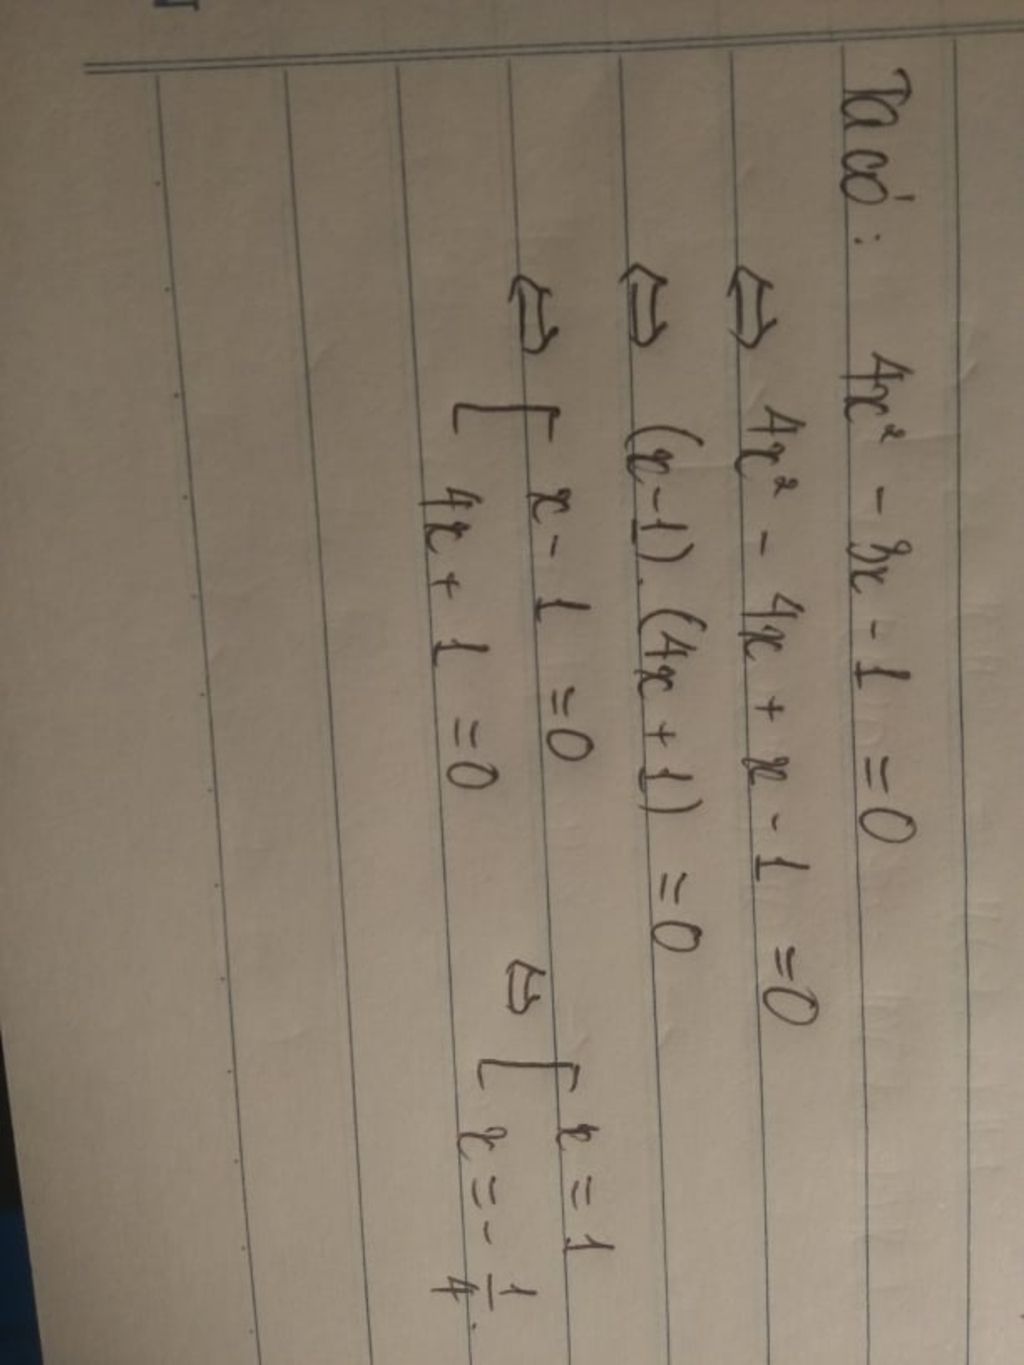 Ta có: 4x² - 3x - 1 = 0
⇔ 4x² - 4x + x - 1 = 0
⇔ (x-1).(4x+1) = 0
⇔ [ x - 1 = 0 ⇔ [ x = 1
4x + 1 = 0 x = - 1/4.